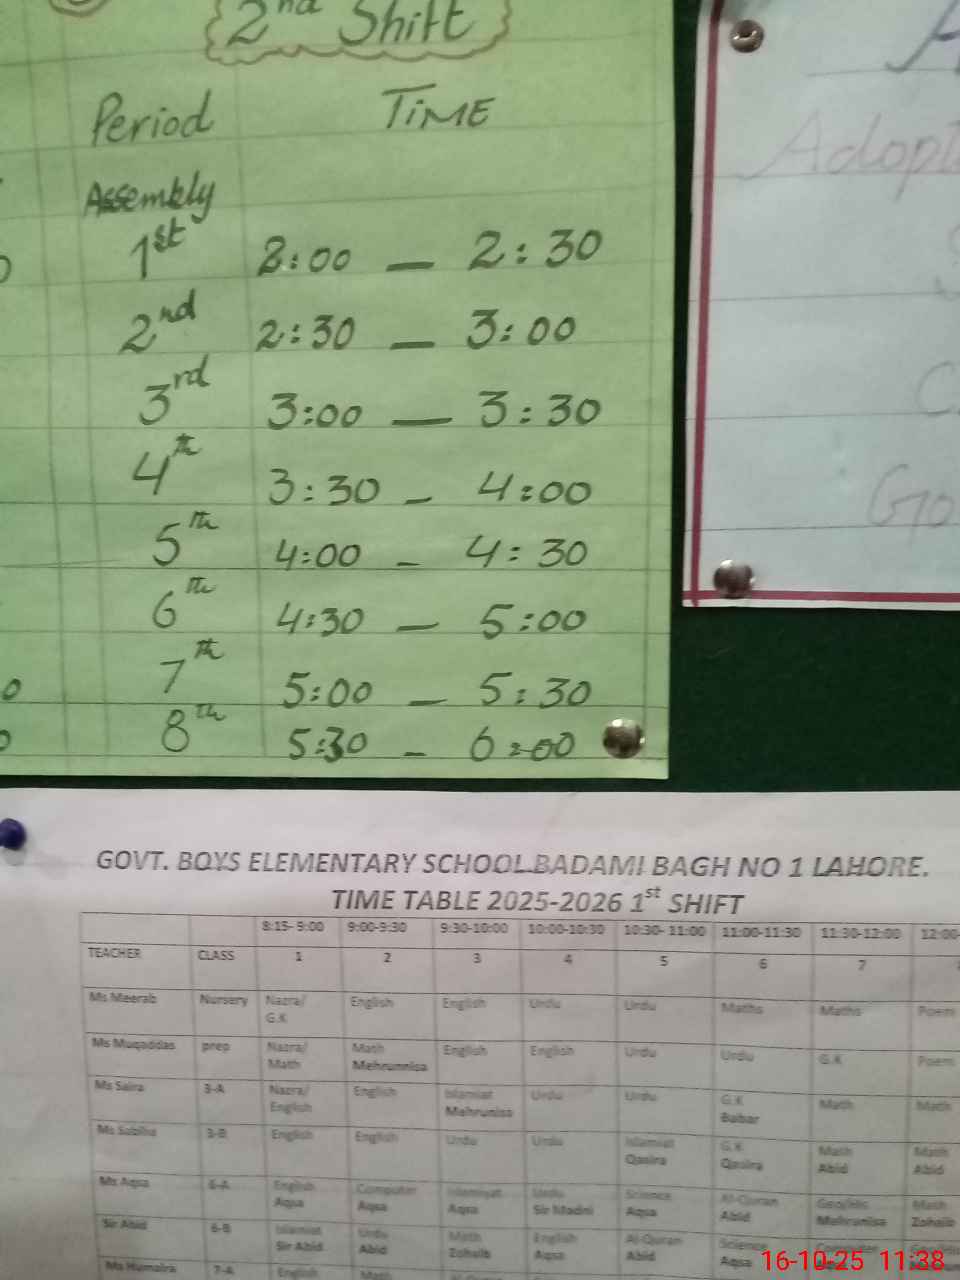 2nd Shift
Period TIME
Assembly
1st 2:00 — 2:30
2nd 2:30 — 3:00
3rd 3:00 — 3:30
4th 3:30 — 4:00
5th 4:00 — 4:30
6th 4:30 — 5:00
7th 5:00 — 5:30
8th 5:30 — 6:00
Adopt
GOVT. BOYS ELEMENTARY SCHOOL.BADAMI BAGH NO 1 LAHORE.
TIME TABLE 2025-2026 1st SHIFT
8:15-9:00 9:00-9:30 9:30-10:00 10:00-10:30 10:30-11:00 11:00-11:30 11:30-12:00 12:00-
TEACHER CLASS 1 2 3 4 5 6 7
Ms Meerab Nursery Nazra/ English English Urdu Urdu Maths Maths Poem
G.K
Ms Muqaddas prep Nazra/ Math English English Urdu Urdu G.K Poem
Math Mehrunnisa
Ms Saira 3-A Nazra/ English Islamiat Urdu Urdu G.K Math Math
English Mehrunisa Babar
Ms Sabiha 3-B English English Urdu Urdu Islamiat G.K Math Math
Qasira Qasira Abid Abid
Ms Aqsa 6-A English Computer Islamiyat Urdu Science Al-Quran Geo/His Math
Aqsa Aqsa Aqsa Sir Madni Aqsa Abid Mehrunisa Zohaib
Sir Abid 6-B Islamiat Urdu Math English Al-Quran Science Computer
Sir Abid Abid Zohaib Aqsa Abid Aqsa
Ms Humaira 7-A English Math
16-10-25 11:38